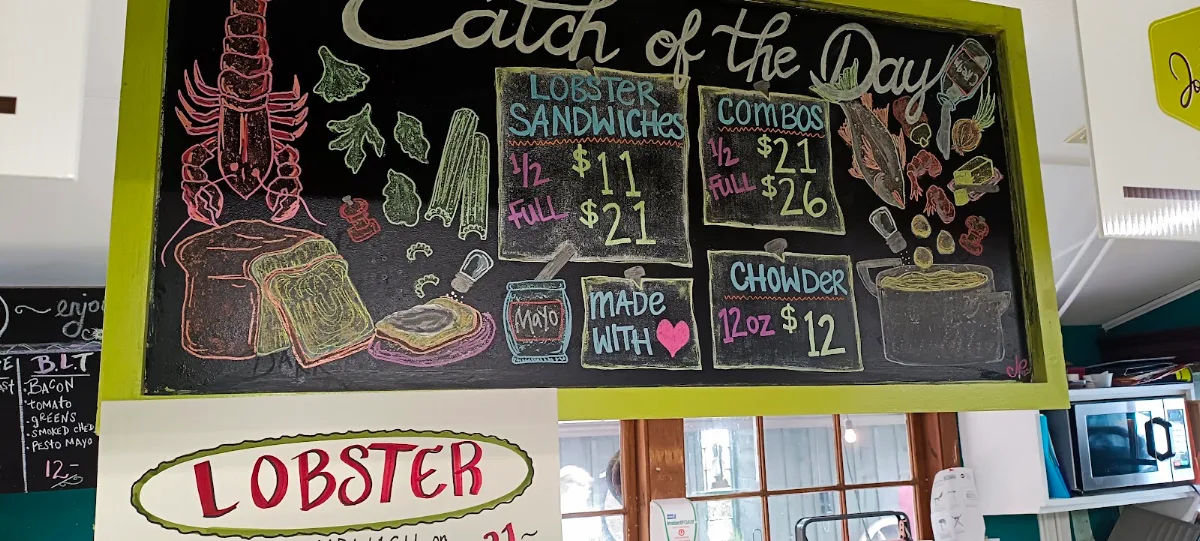 Catch of the Day
LOBSTER
SANDWICHES
1/2 $11
FULL $21
COMBOS
1/2 $21
FULL $26
CHOWDER
12oz $12
MADE
WITH
MAYO
enjo
B.L.T
• BACON
• TOMATO
• GREENS
• SMOKED CHED
• PESTO MAYO
12-
LOBSTER
on 21~
Jo